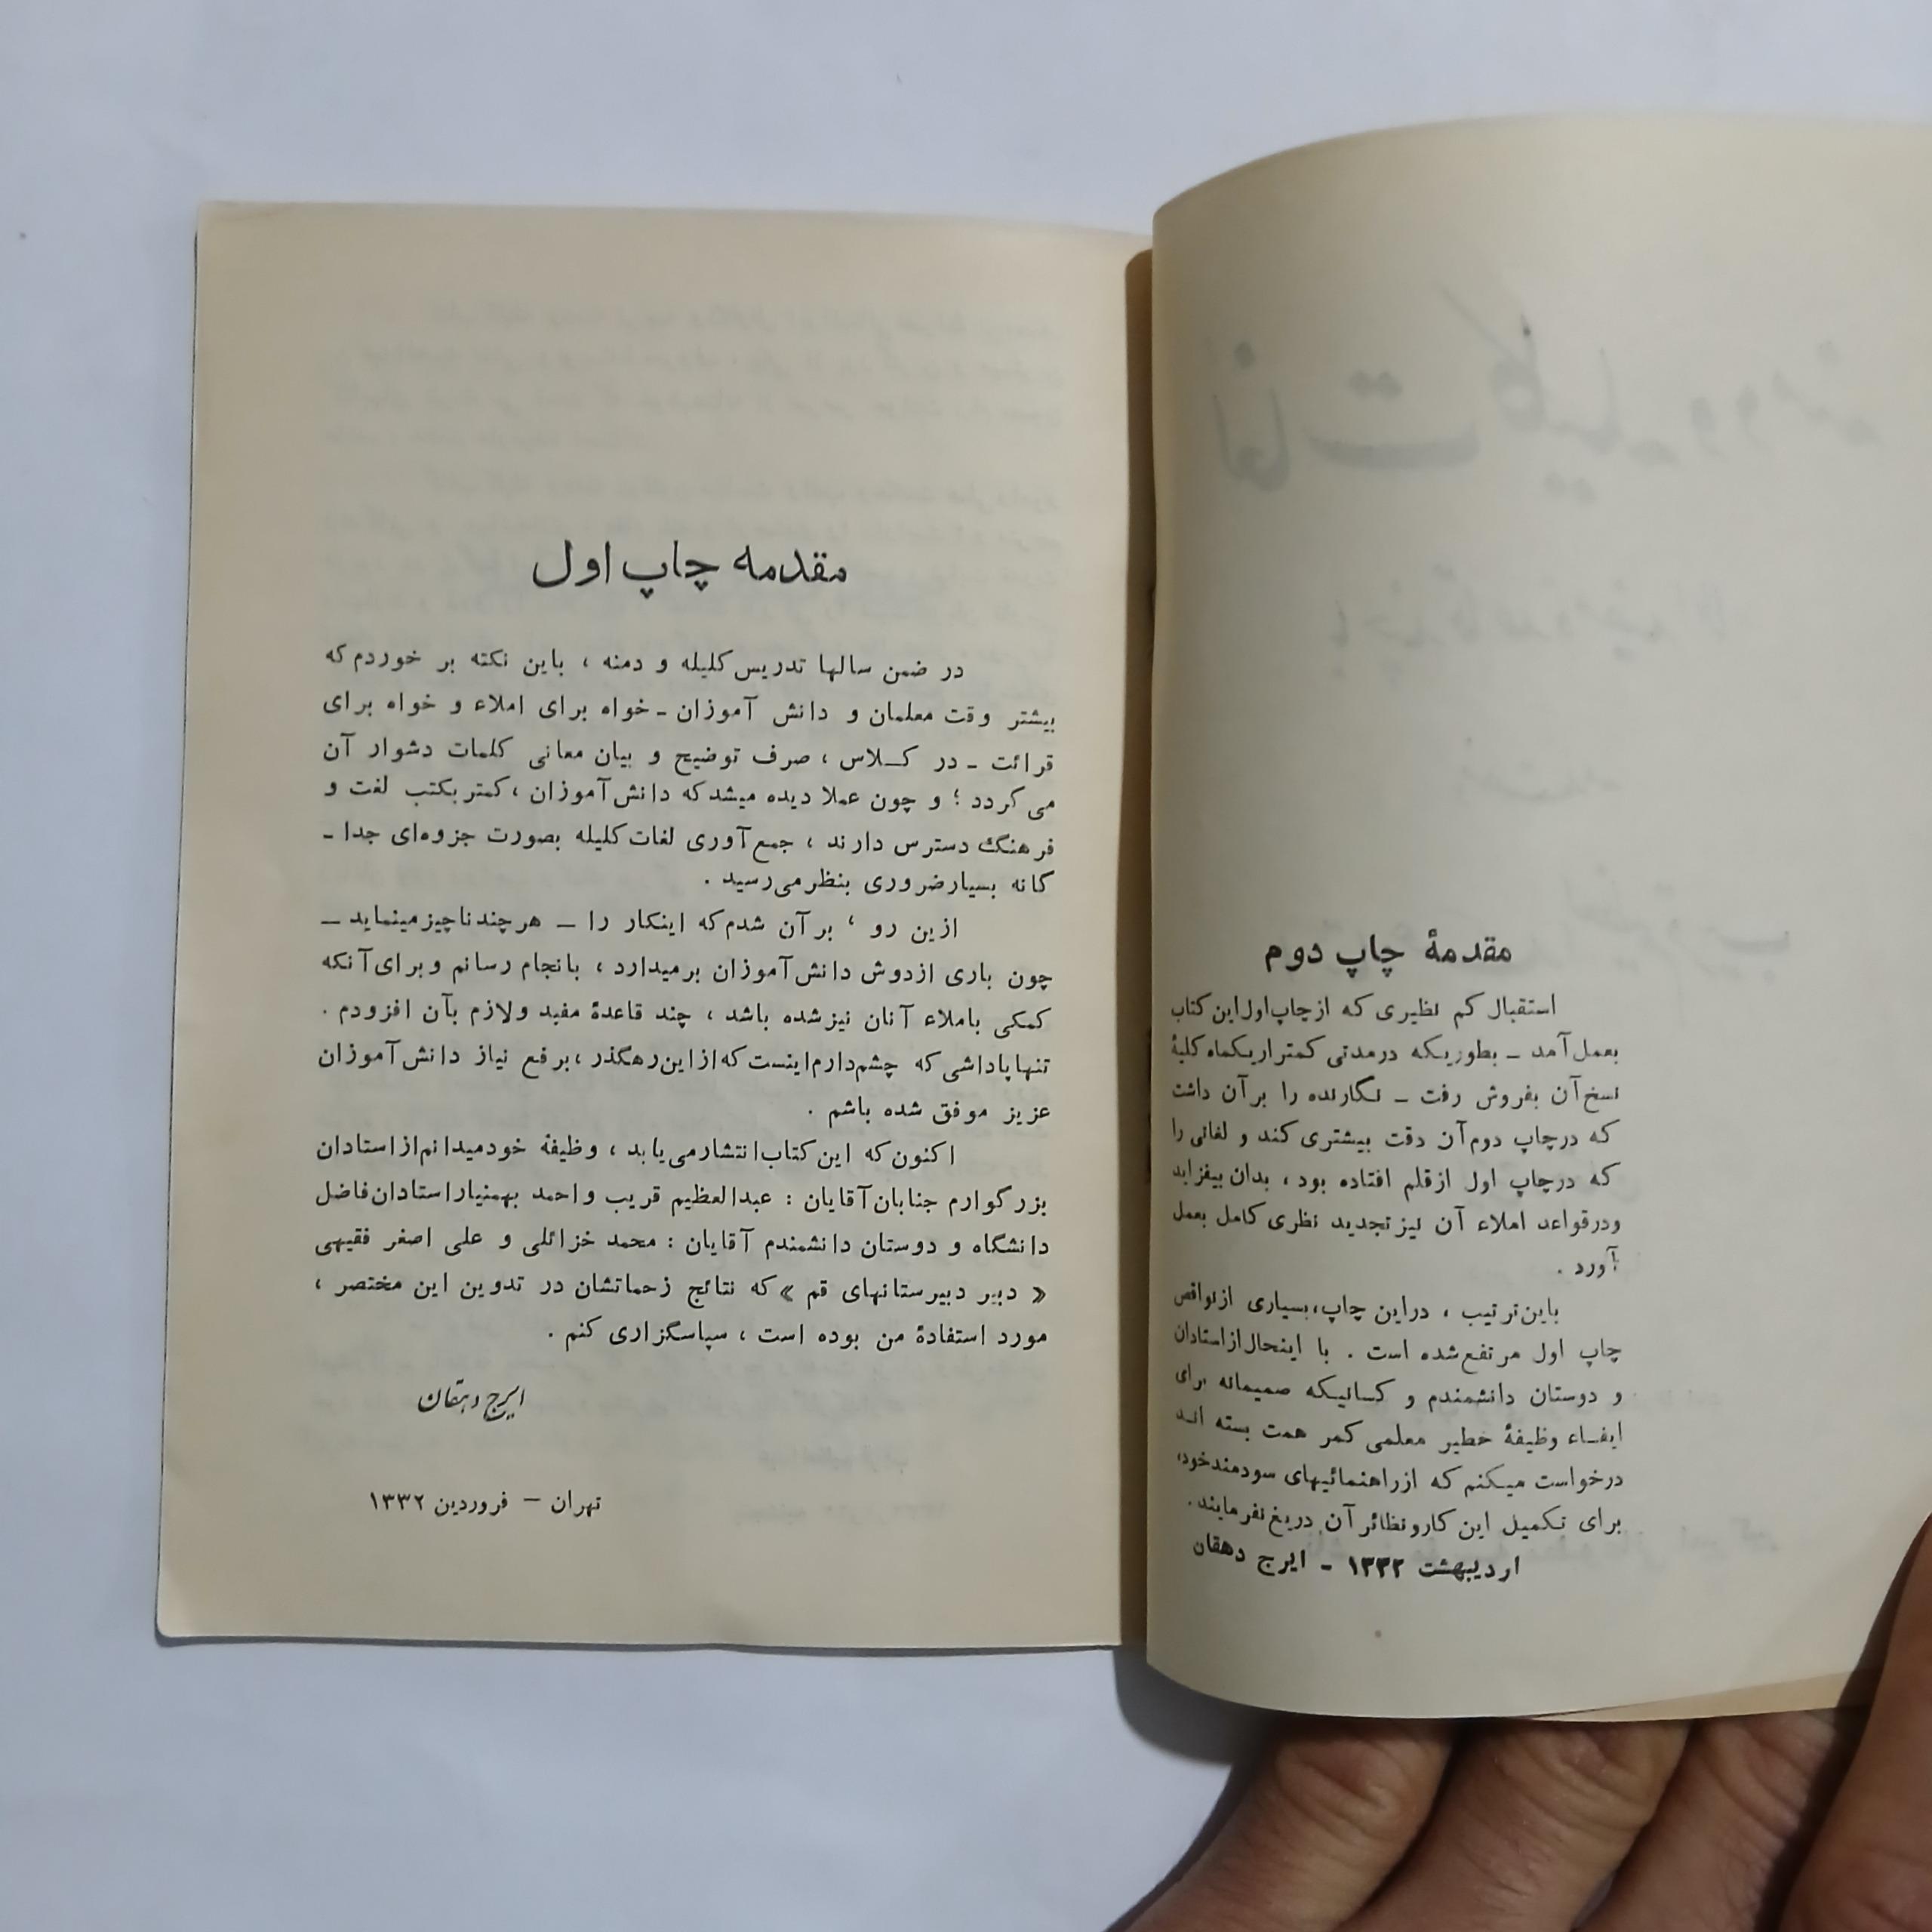 مقدمهٔ چاپ دوم
استقبال کم نظیری که ازچاپ‌اول‌این‌کتاب
بعمل‌آمد ـ بطوریکه درمدتی کمتراریکماه‌کلیهٔ
نسخ‌آن بفروش رفت ـ نگارنده را برآن داشت
که درچاپ دوم‌آن دقت بیشتری‌کند و لغاتی را
که درچاپ اول ازقلم افتاده بود ، بدان بیفزاید
ودرقواعد املاء آن نیزتجدید نظری کامل بعمل
آورد .
باین‌ترتیب ، دراین چاپ،بسیاری ازنواقص
چاپ اول مرتفع‌شده است . با اینحال‌ازاستادان
و دوستان دانشمندم و کسانیکه صمیمانه برای
ایفاء وظیفهٔ خطیر معلمی کمر همت بسته اند
درخواست میکنم که ازراهنمائیهای سودمندخود،
برای تکمیل این‌کارونظائرآن دریغ‌نفرمایند.
اردیبهشت ۱۳۳۲ ـ ایرج دهقان
مقدمه چاپ اول
در ضمن سالها تدریس‌کلیله و دمنه ، باین نکته بر خوردم‌که
بیشتر وقت معلمان و دانش آموزان ـ خواه برای املاء و خواه برای
قرائت ـ در کلاس ، صرف توضیح و بیان معانی کلمات دشوار آن
می‌گردد ؛ و چون عملا دیده میشدکه دانش‌آموزان ،کمتربکتب لغت و
فرهنگ دسترس دارند ، جمع‌آوری لغات‌کلیله بصورت جزوه‌ای جدا ـ
گانه بسیارضروری بنظرمی‌رسید .
ازین رو ، برآن شدم‌که اینکار را ـ هرچندناچیزمینماید ـ
چون باری ازدوش دانش‌آموزان برمیدارد ، بانجام رسانم وبرای‌آنکه
کمکی باملاء آنان نیزشده باشد ، چند قاعدهٔ مفید ولازم بآن افزودم .
تنهاپاداشی‌که چشم‌دارم‌اینست‌که‌ازاین‌رهگذر ،برفع نیاز دانش‌آموزان
عزیز موفق شده باشم .
اکنون‌که این‌کتاب‌انتشارمی‌یابد ، وظیفهٔ خودمیدانم‌ازاستادان
بزرگوارم جنابان‌آقایان : عبدالعظیم قریب واحمد بهمنیاراستادان‌فاضل
دانشگاه و دوستان دانشمندم آقایان : محمد خزائلی و علی اصغر فقیهی
« دبیر دبیرستانهای قم »که نتائج زحماتشان در تدوین این مختصر ،
مورد استفادهٔ من بوده است ، سپاسگزاری کنم .
ایرج دهقان
تهران – فروردین ۱۳۳۲